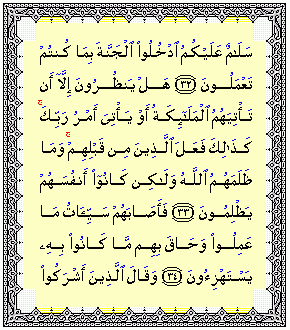 سَلَٰمٌ عَلَيْكُمُ ٱدْخُلُوا۟ ٱلْجَنَّةَ بِمَا كُنتُمْ
تَعْمَلُونَ ﴿٣٢﴾ هَلْ يَنظُرُونَ إِلَّآ أَن
تَأْتِيَهُمُ ٱلْمَلَٰٓئِكَةُ أَوْ يَأْتِىَ أَمْرُ رَبِّكَ ۚ
كَذَٰلِكَ فَعَلَ ٱلَّذِينَ مِن قَبْلِهِمْ ۚ وَمَا
ظَلَمَهُمُ ٱللَّهُ وَلَٰكِن كَانُوٓا۟ أَنفُسَهُمْ
يَظْلِمُونَ ﴿٣٣﴾ فَأَصَابَهُمْ سَيِّـَٔاتُ مَا
عَمِلُوا۟ وَحَاقَ بِهِم مَّا كَانُوا۟ بِهِۦ
يَسْتَهْزِءُونَ ﴿٣٤﴾ وَقَالَ ٱلَّذِينَ أَشْرَكُوا۟